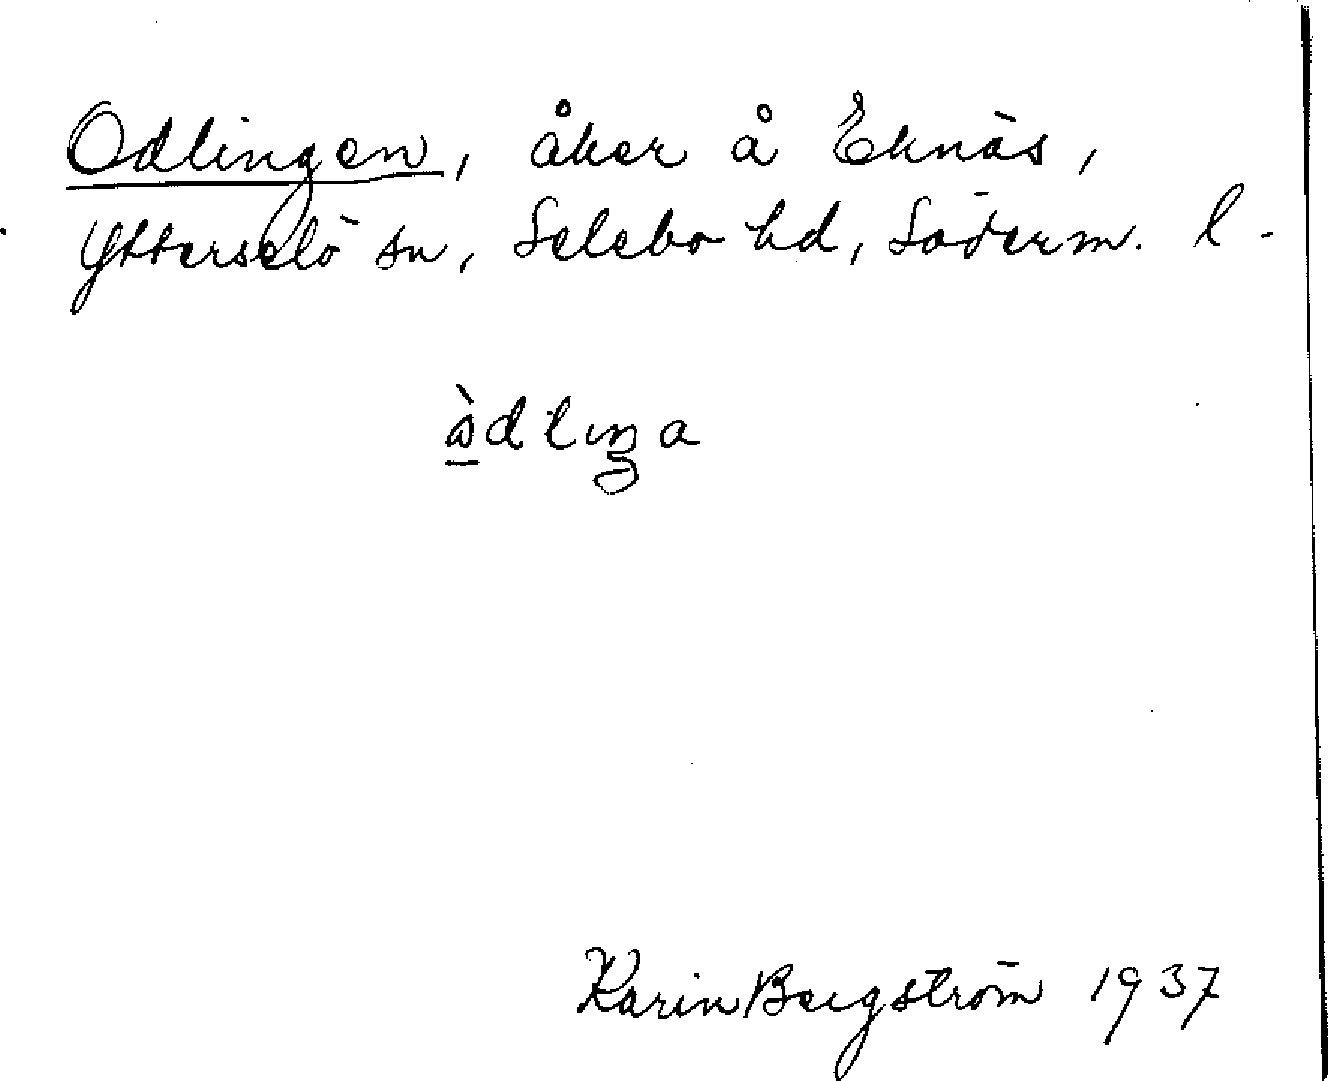 Odlingen, åker å Eknäs,
Ytterselö sn, Selebo hd, Söderm. l.
Karin Bergström 1937